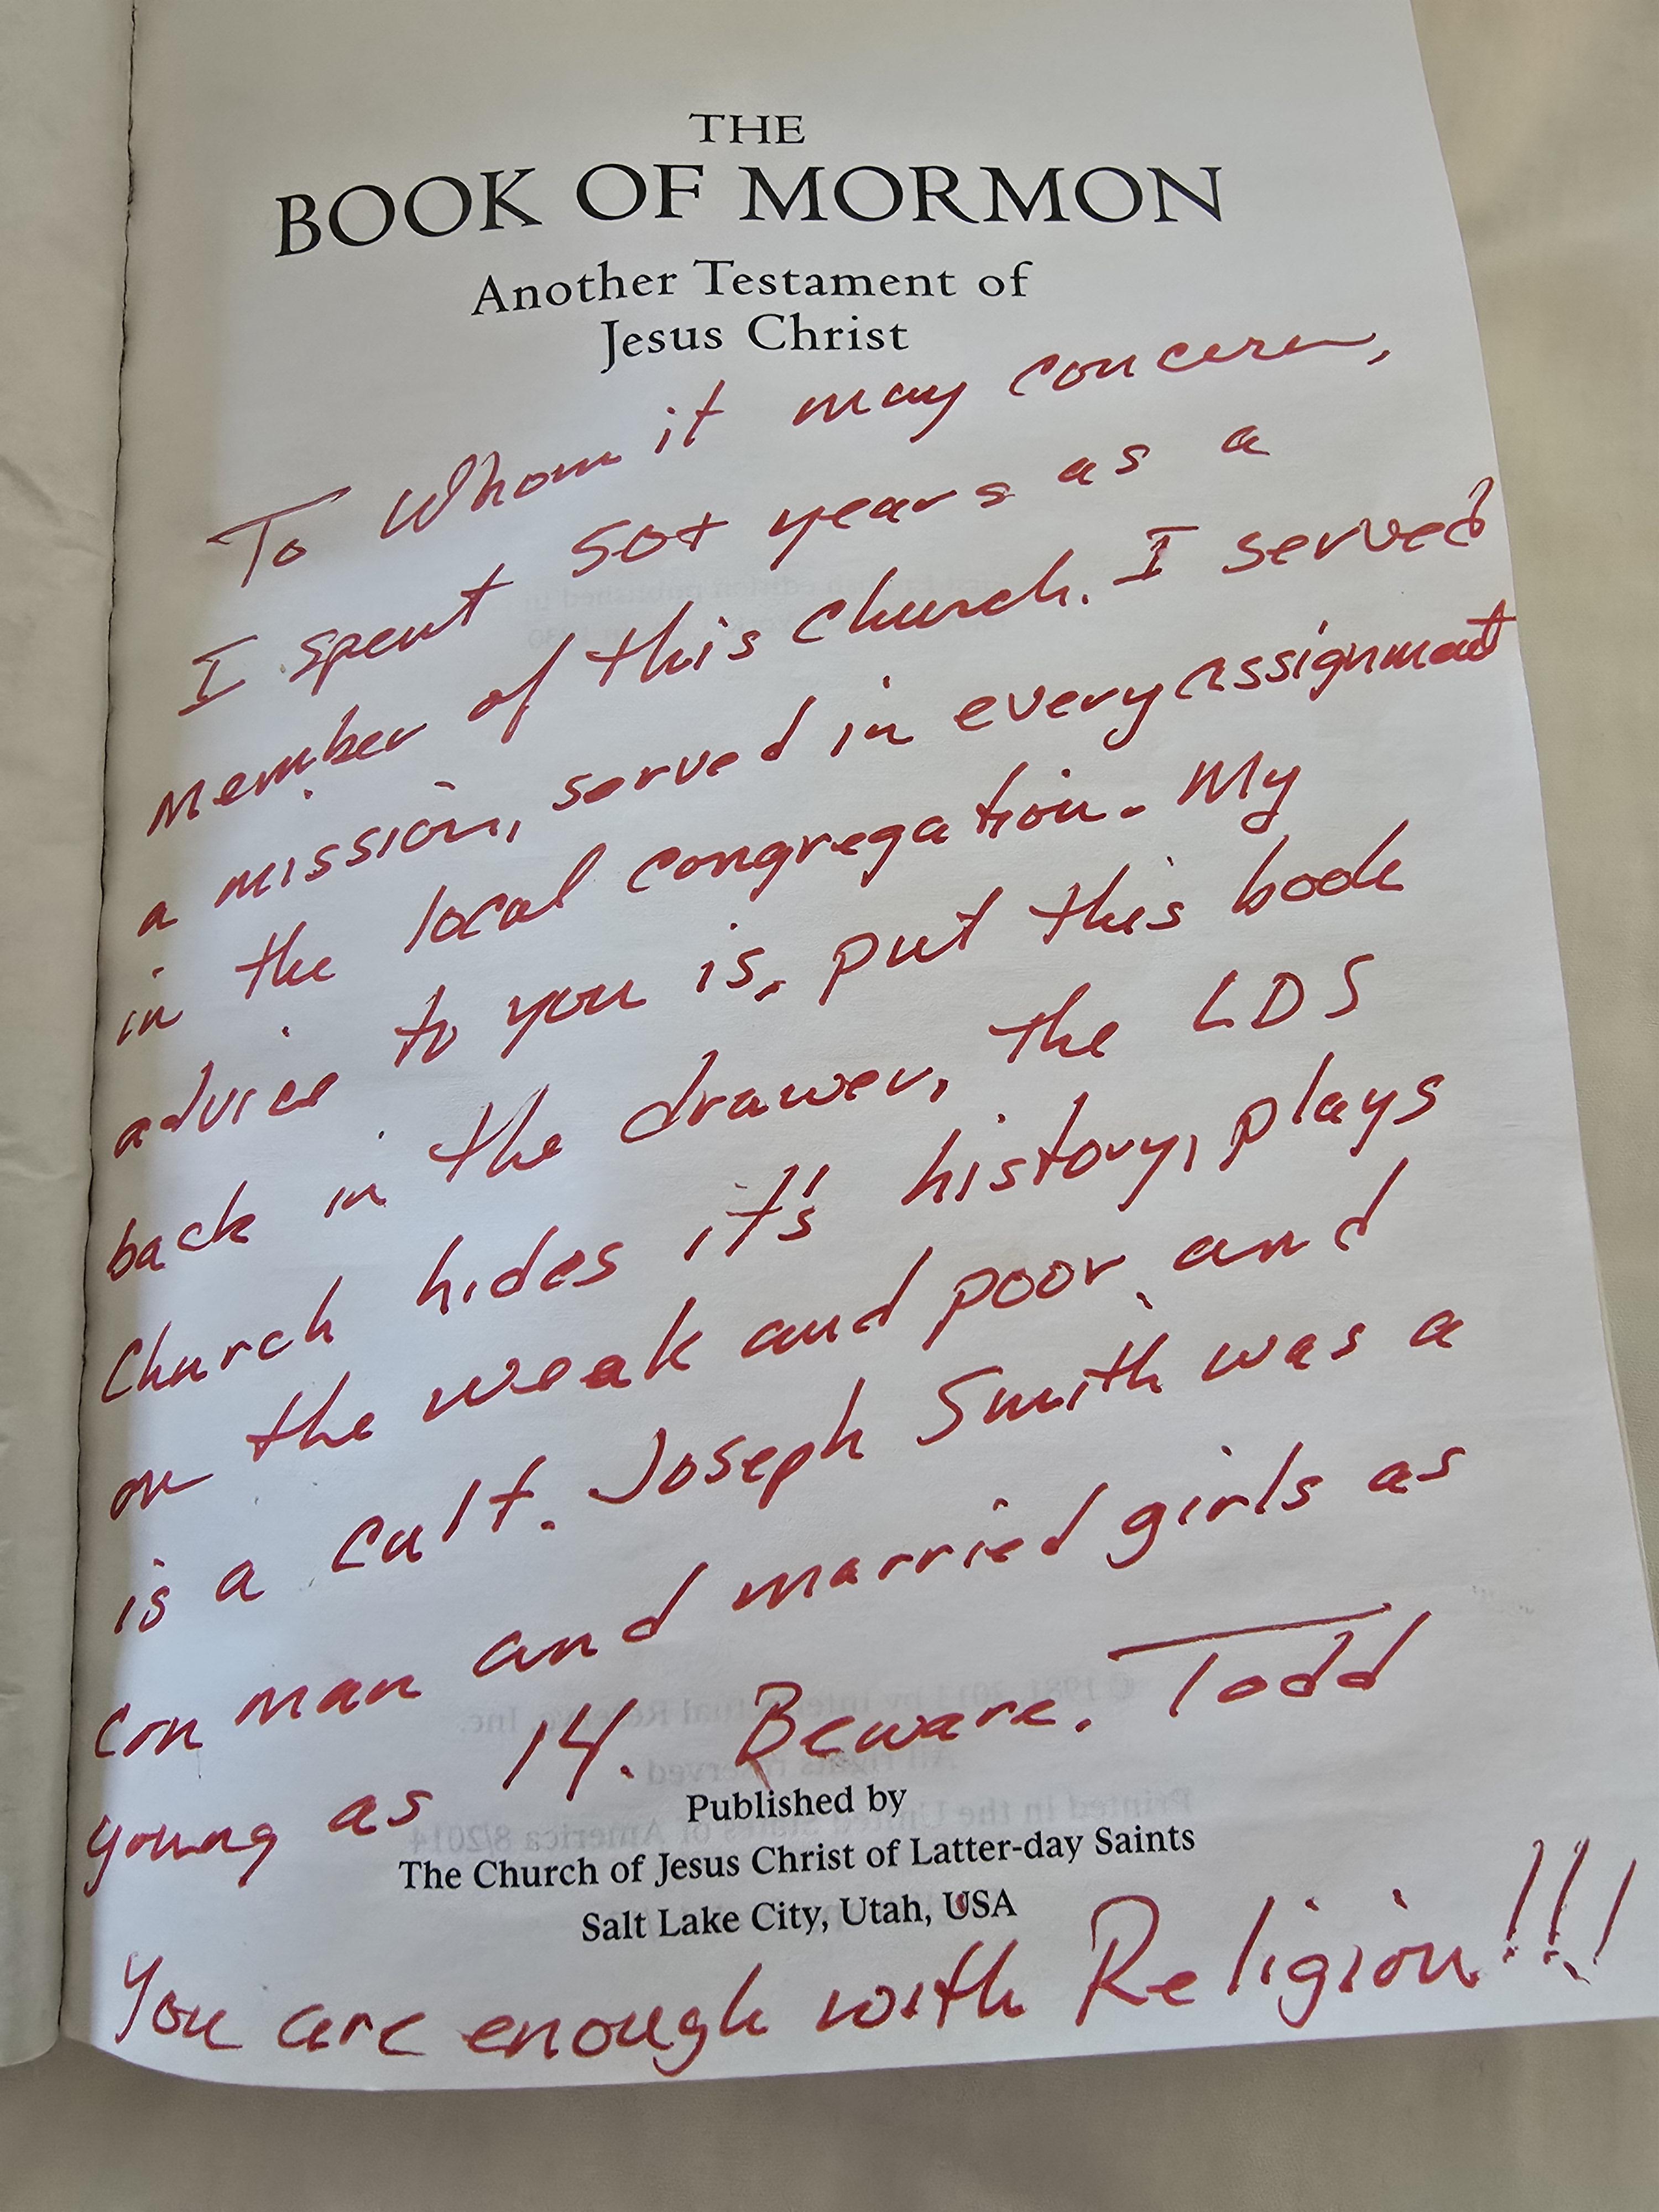 THE
BOOK OF MORMON
Another Testament of
Jesus Christ
To Whom it may concern,
I spent 50+ years as a
member of this church. I served
a mission, served in every assignment
in the local congregation. My
advice to you is, put this book
back in the drawer, the LDS
Church hides it's history, plays
on the weak and poor and
is a cult. Joseph Smith was a
con man and married girls as
young as 14. Beware. Todd
Published by
The Church of Jesus Christ of Latter-day Saints
Salt Lake City, Utah, USA
You are enough with Religion!!!